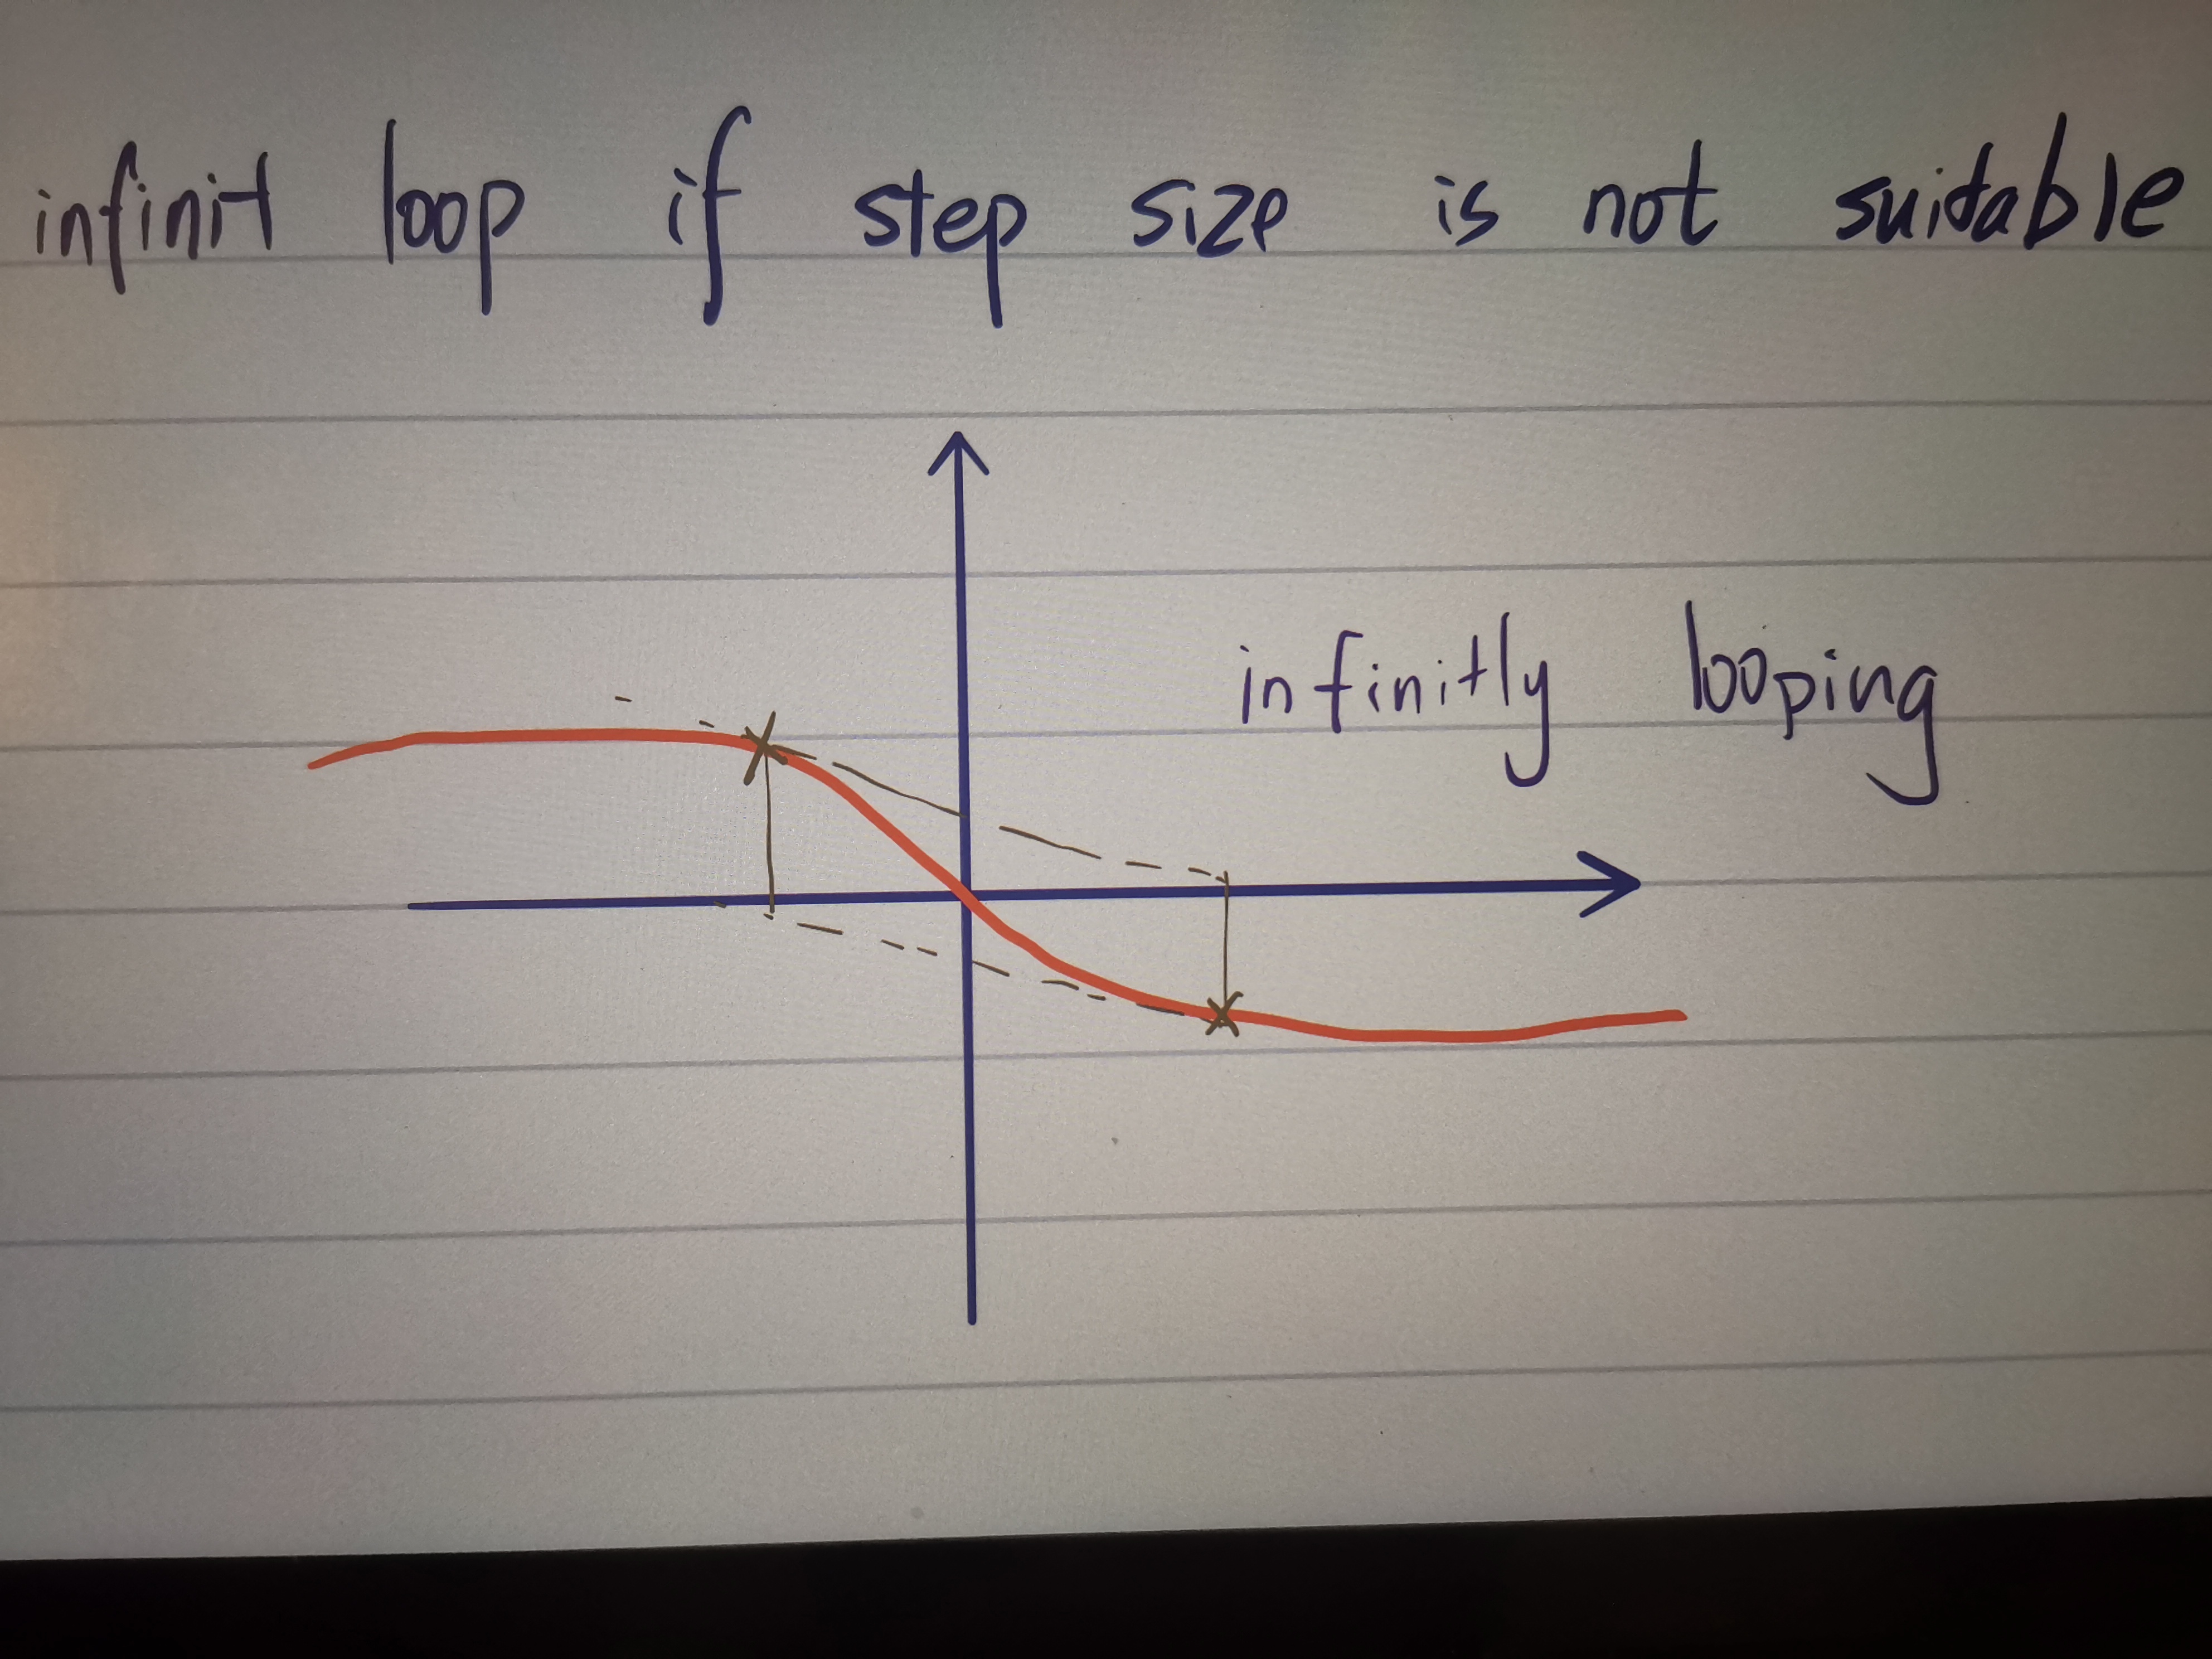 infinit loop if step size is not suitable
infinitly looping